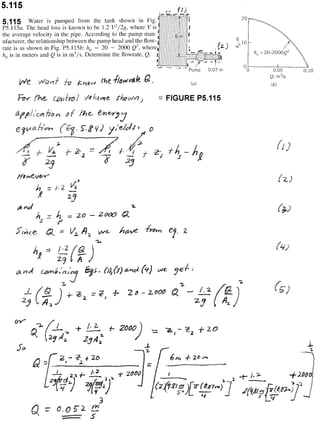 5.115
5.115 Water is pumped from the tank shown in Fig.
P5.115a. The head loss is known to be 1.2 V²/2g, where V is
the average velocity in the pipe. According to the pump man-
ufacturer, the relationship between the pump head and the flow-
rate is as shown in Fig. P5.115b: hp = 20 − 2000 Q², where
hp is in meters and Q is in m³/s. Determine the flowrate, Q.
(1)
(2)
Pump 0.07 m
(a)
20
10
hp = 20-2000Q²
0
0 0.05 0.10
Q, m³/s
(b)
We want to know the flowrate Q.
For the control volume shown,
FIGURE P5.115
application of the energy
equation (Eq. 5.84) yields:
P₂/γ + V₂²/2g + z₂ = P₁/γ + V₁²/2g + z₁ + hs − hℓ (1)
However
hℓ = 1.2 V₂²/2g (2)
and
hs = hp = 20 − 2000 Q² (3)
Since Q = V₂A₂ we have from eq. 2
hℓ = 1.2/2g (Q/A₂)² (4)
and combining Eqs. (1), (3) and (4) we get:
1/2g (Q/A₂)² + z₂ = z₁ + 20 − 2000 Q² − 1.2/2g (Q/A₂)² (5)
or
Q² (1/2gA₂² + 1.2/2gA₂² + 2000) = z₁ − z₂ + 20
So
Q = 0.052 m³/s